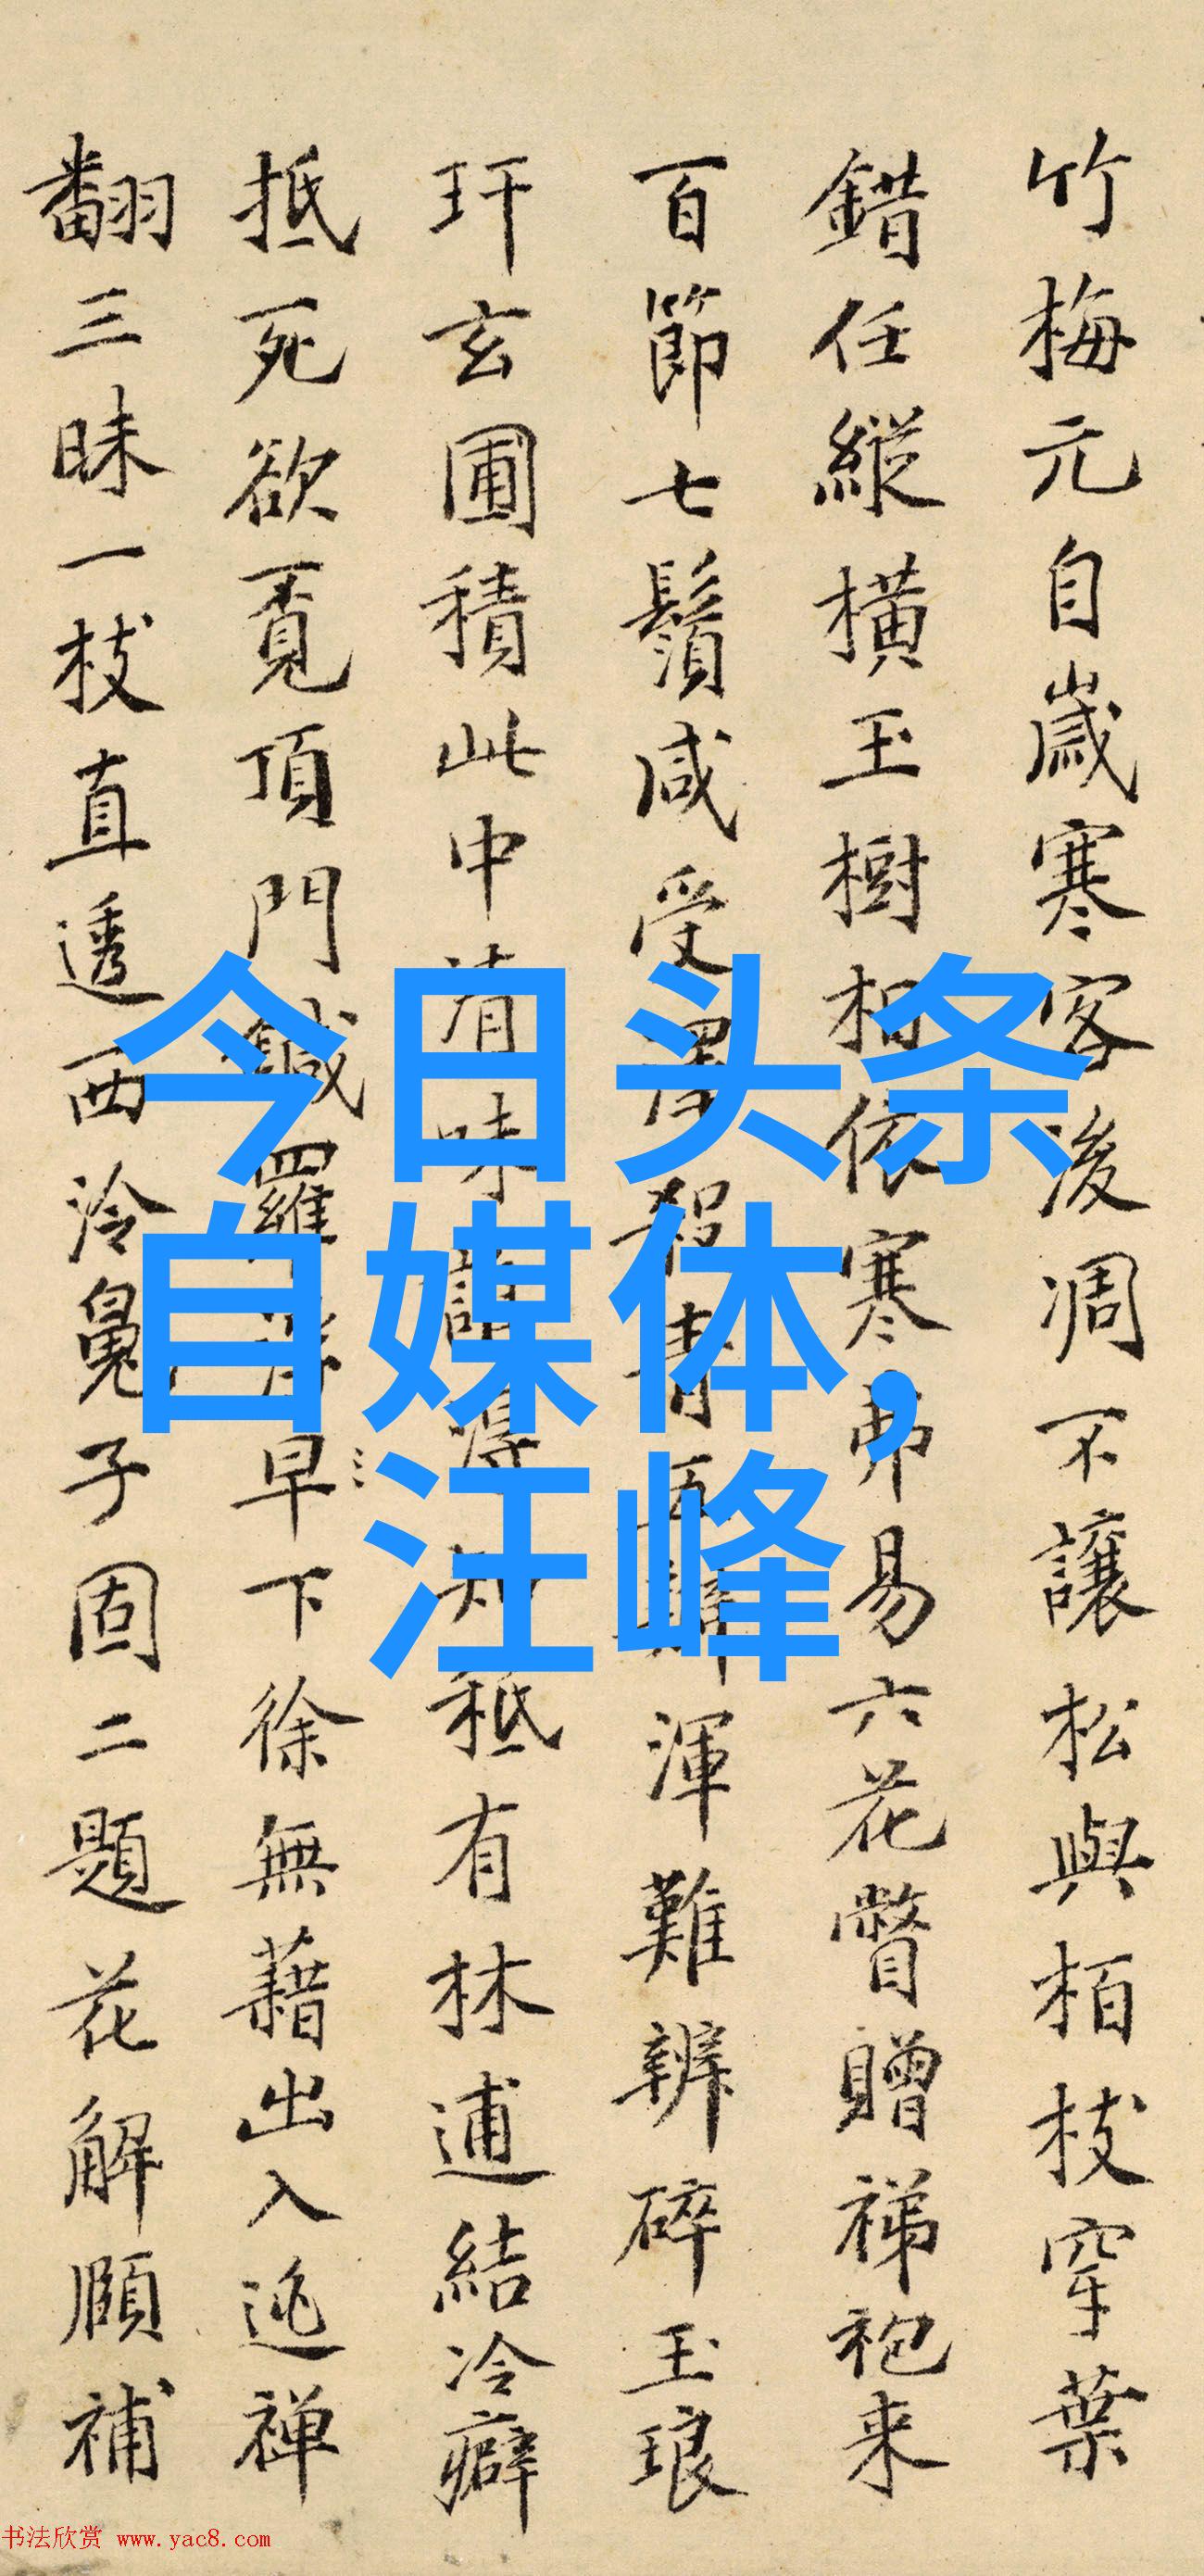 竹梅元自歲寒客後凋不讓松與栢枝穿葉
錯任縱橫玉樹相依寒弗易六花瞥贈祶袍来
百節七鬚咸受澤殺青五瓣渾難辨碎玉琅
玕玄圃積此中清味誰得知秪有林逋結冷癖
抵死欲覔頂門鍼羅浮早下徐無藉出入逃禅
翻三昧一枝直透西泠子固二題花解頤補
今日头条
自媒体，
汪峰
书法欣赏 www.yac8.com